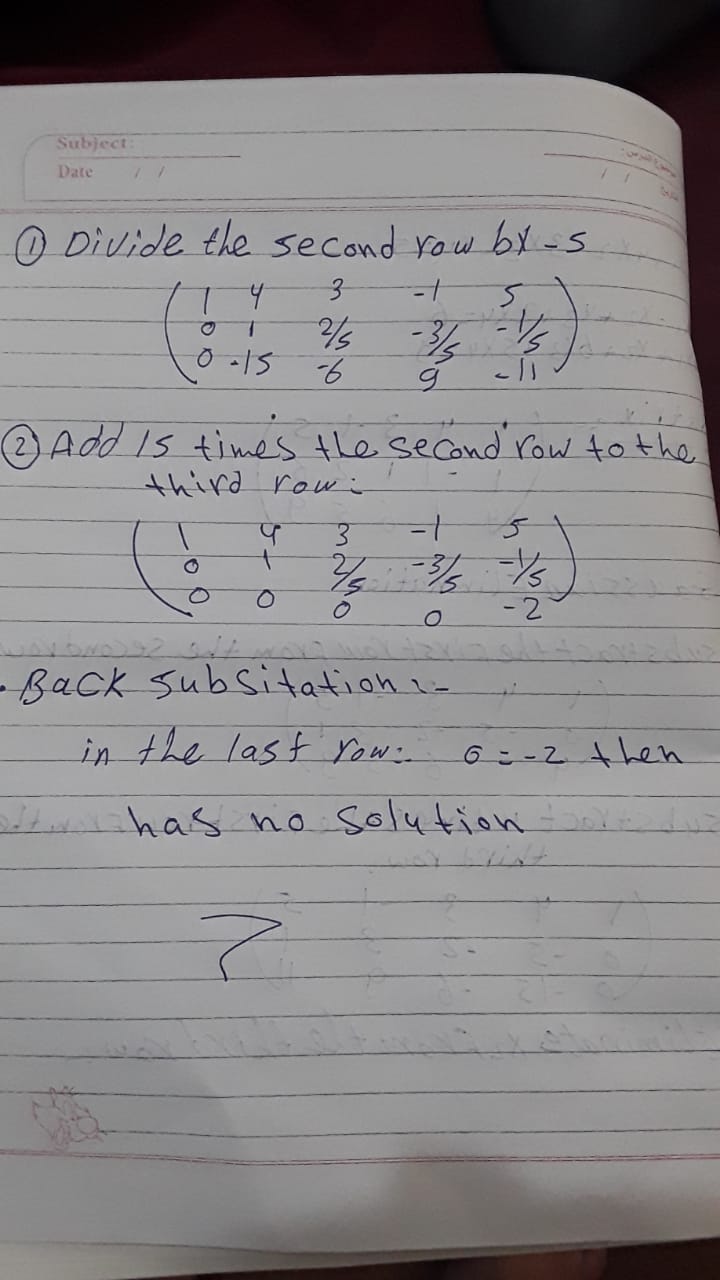 Subject:
Date / /
/ /
① Divide the second row by -5
1 4 3 -1 5
0 1 2/5 -3/5 -1/5
0 -15 -6 9 -11
② Add 15 times the second row to the
third row:
1 4 3 -1 5
0 1 2/5 -3/5 -1/5
0 0 0 0 -2
. Back subsitation :-
in the last row: 0 = -2 then
has no solution